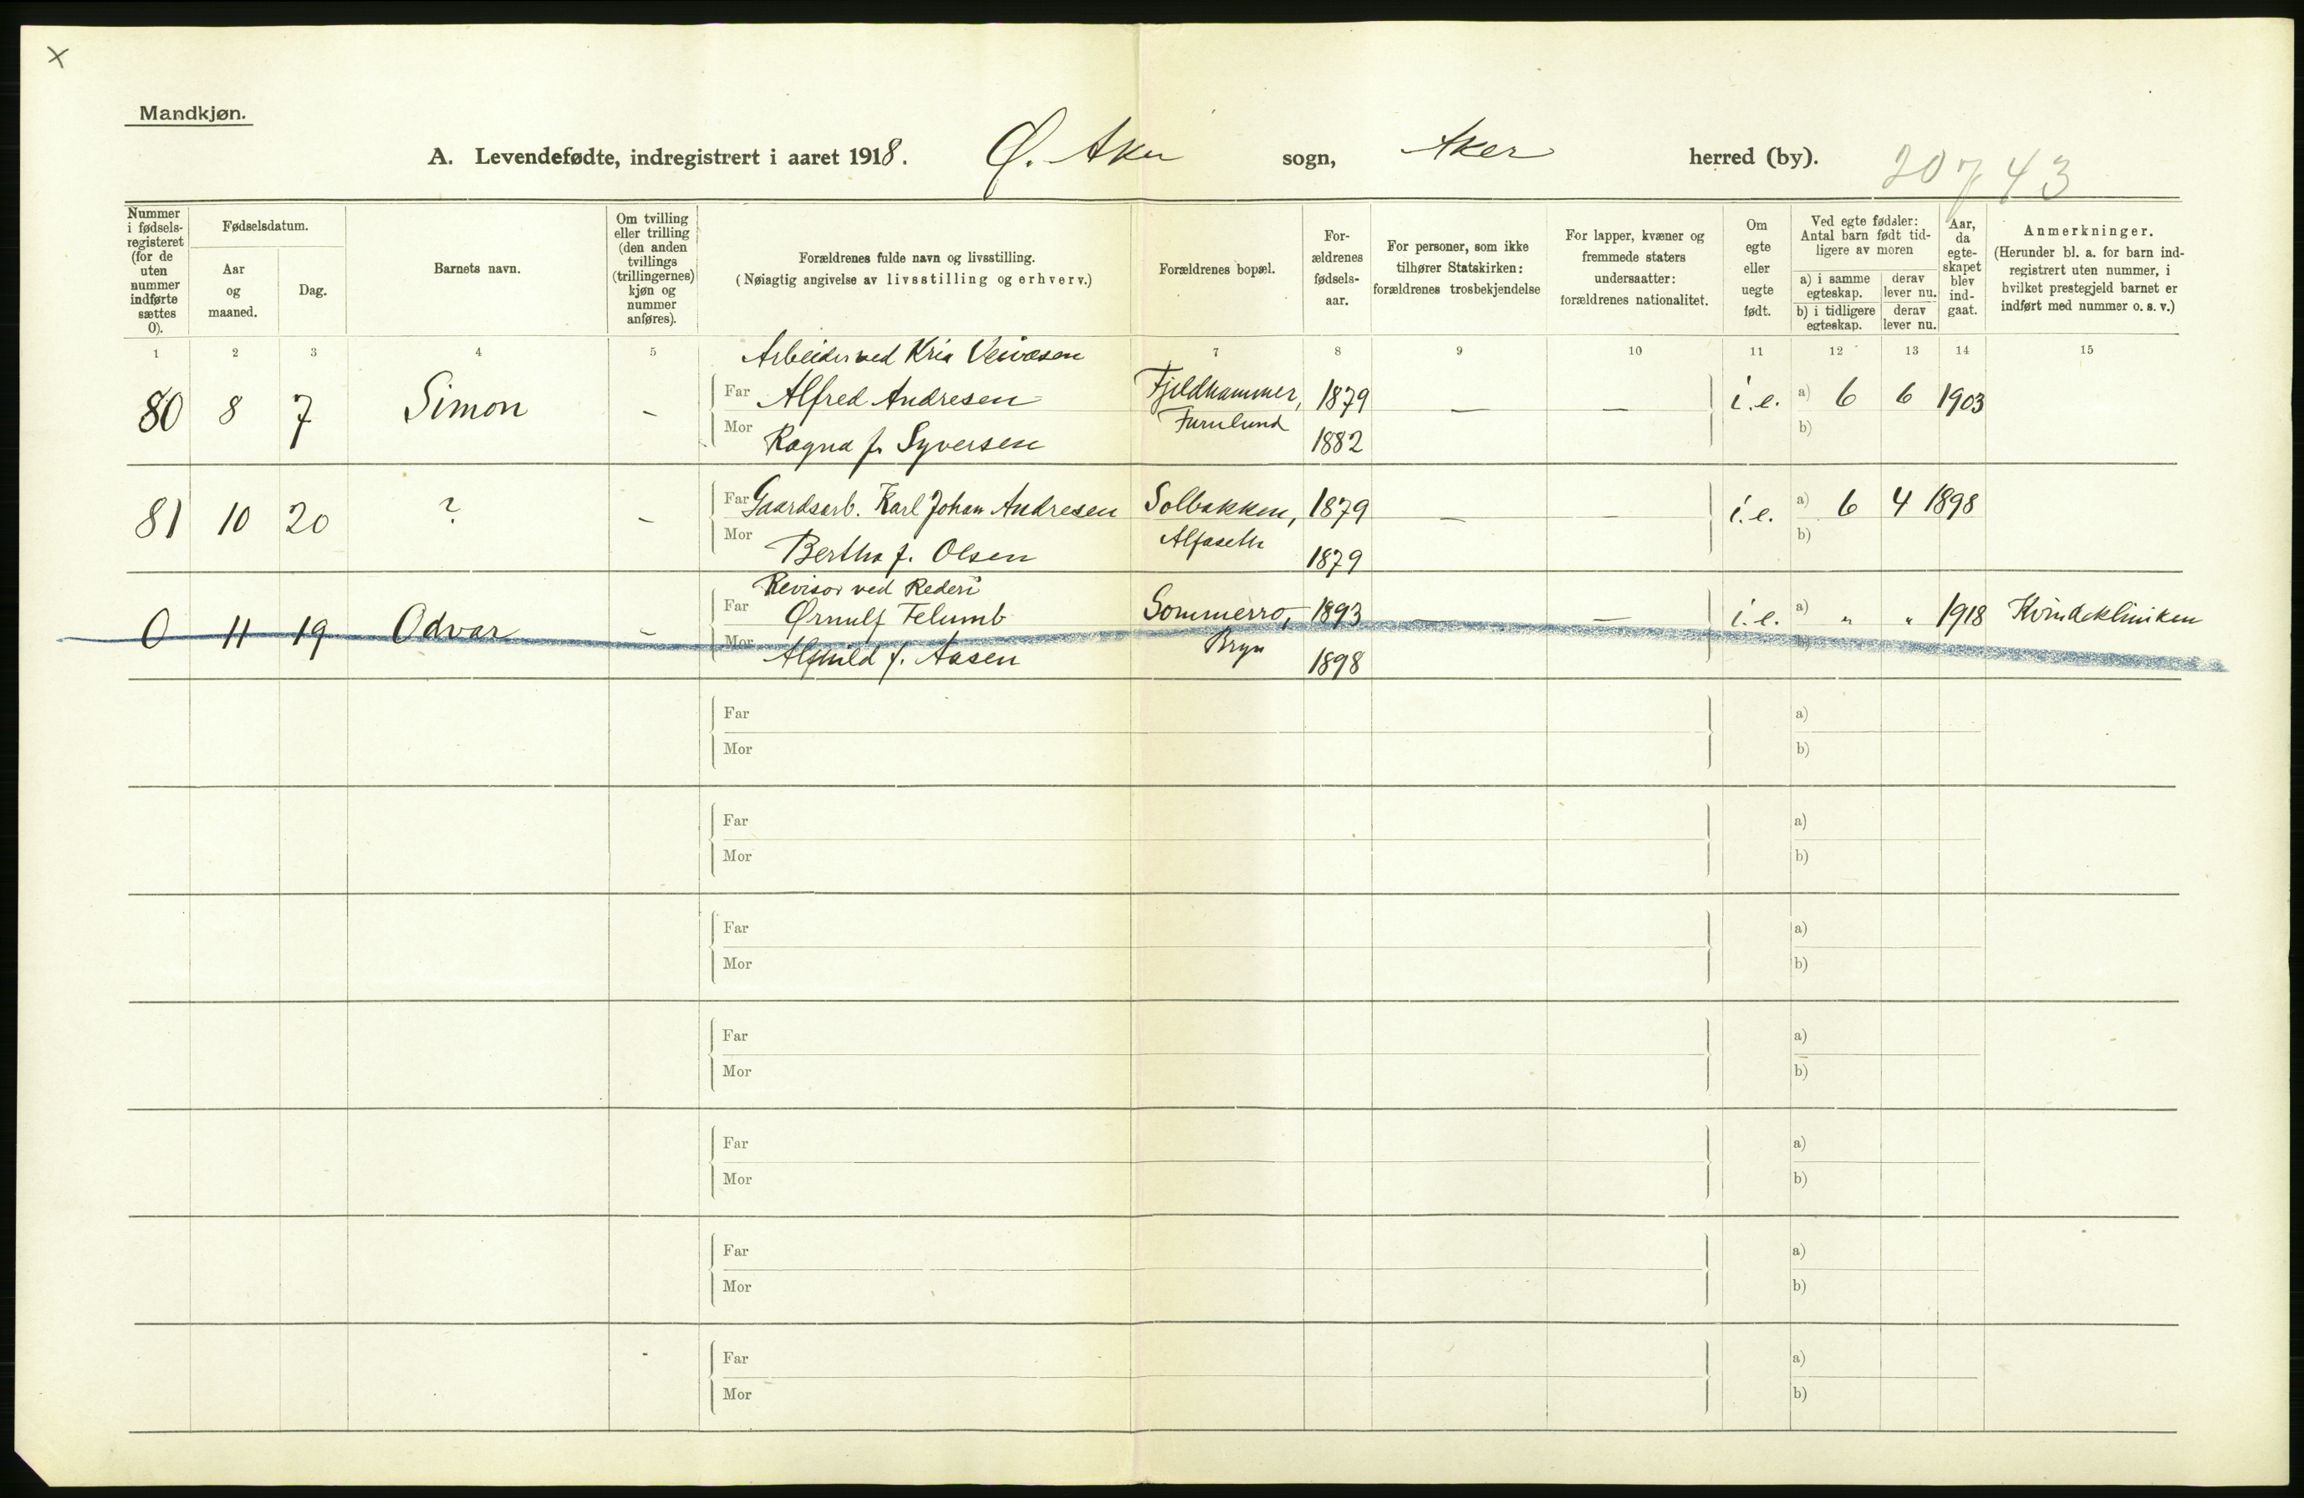 x
Mandkjøn.
A. Levendefødte, indregistrert i aaret 1918. Ø. Aker sogn, Aker herred (by). 20743
Nummer i fødsels-registeret (for de uten nummer indførte sættes 0).
Fødselsdatum.
Aar og maaned.
Dag.
Barnets navn.
Om tvilling eller trilling (den anden tvillings (trillingernes) kjøn og nummer anføres).
Forældrenes fulde navn og livsstilling.
(Nøiagtig angivelse av livsstilling og erhverv.)
Forældrenes bopæl.
For-ældrenes fødsels-aar.
For personer, som ikke tilhører Statskirken: forældrenes trosbekjendelse
For lapper, kvæner og fremmede staters undersaatter: forældrenes nationalitet.
Om egte eller uegte født.
Ved egte fødsler: Antal barn født tid-ligere av moren
a) i samme egteskap.
derav lever nu.
b) i tidligere egteskap.
derav lever nu.
Aar, da egte-skapet blev ind-gaat.
Anmerkninger.
(Herunder bl. a. for barn ind-registrert uten nummer, i hvilket prestegjeld barnet er indført med nummer o. s. v.)
1 2 3 4 5 7 8 9 10 11 12 13 14 15
Arbeider ved Kria Veivæsen
80 8 7 Simon - Far Alfred Andresen Fjeldhammer, 1879 — — i.e. a) 6 6 1903
Furulund
Mor Ragna f. Syversen 1882 b)
81 10 20 ? - Far Gaardsarb. Karl Johan Andresen Solbakken, 1879 — — i.e. a) 6 4 1898
Alfaseth
Mor Bertha f. Olsen 1879 b)
Revisor ved Rederi
0 11 19 Odvar - Far Ørnulf Felumb Sommerro, 1893 — — i.e. a) " " 1918 Kvindekliniken
Bryn
Mor Alfhild f. Aasen 1898 b)
Far a)
Mor b)
Far a)
Mor b)
Far a)
Mor b)
Far a)
Mor b)
Far a)
Mor b)
Far a)
Mor b)
Far a)
Mor b)